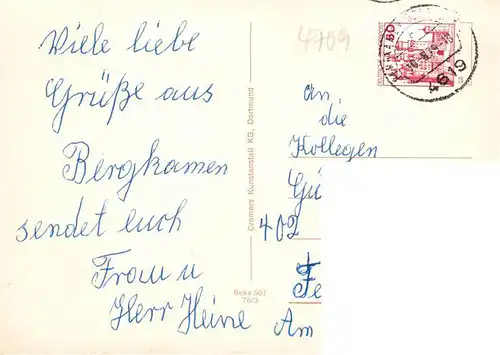 Viele liebe
Grüße aus
Bergkamen
sendet euch
Frau u
Herr Heine
4709
Cramers Kunstanstalt KG, Dortmund
Beke 507
76/3
80
4619
an
die
Kollegen
Gü
402
Fe
Am